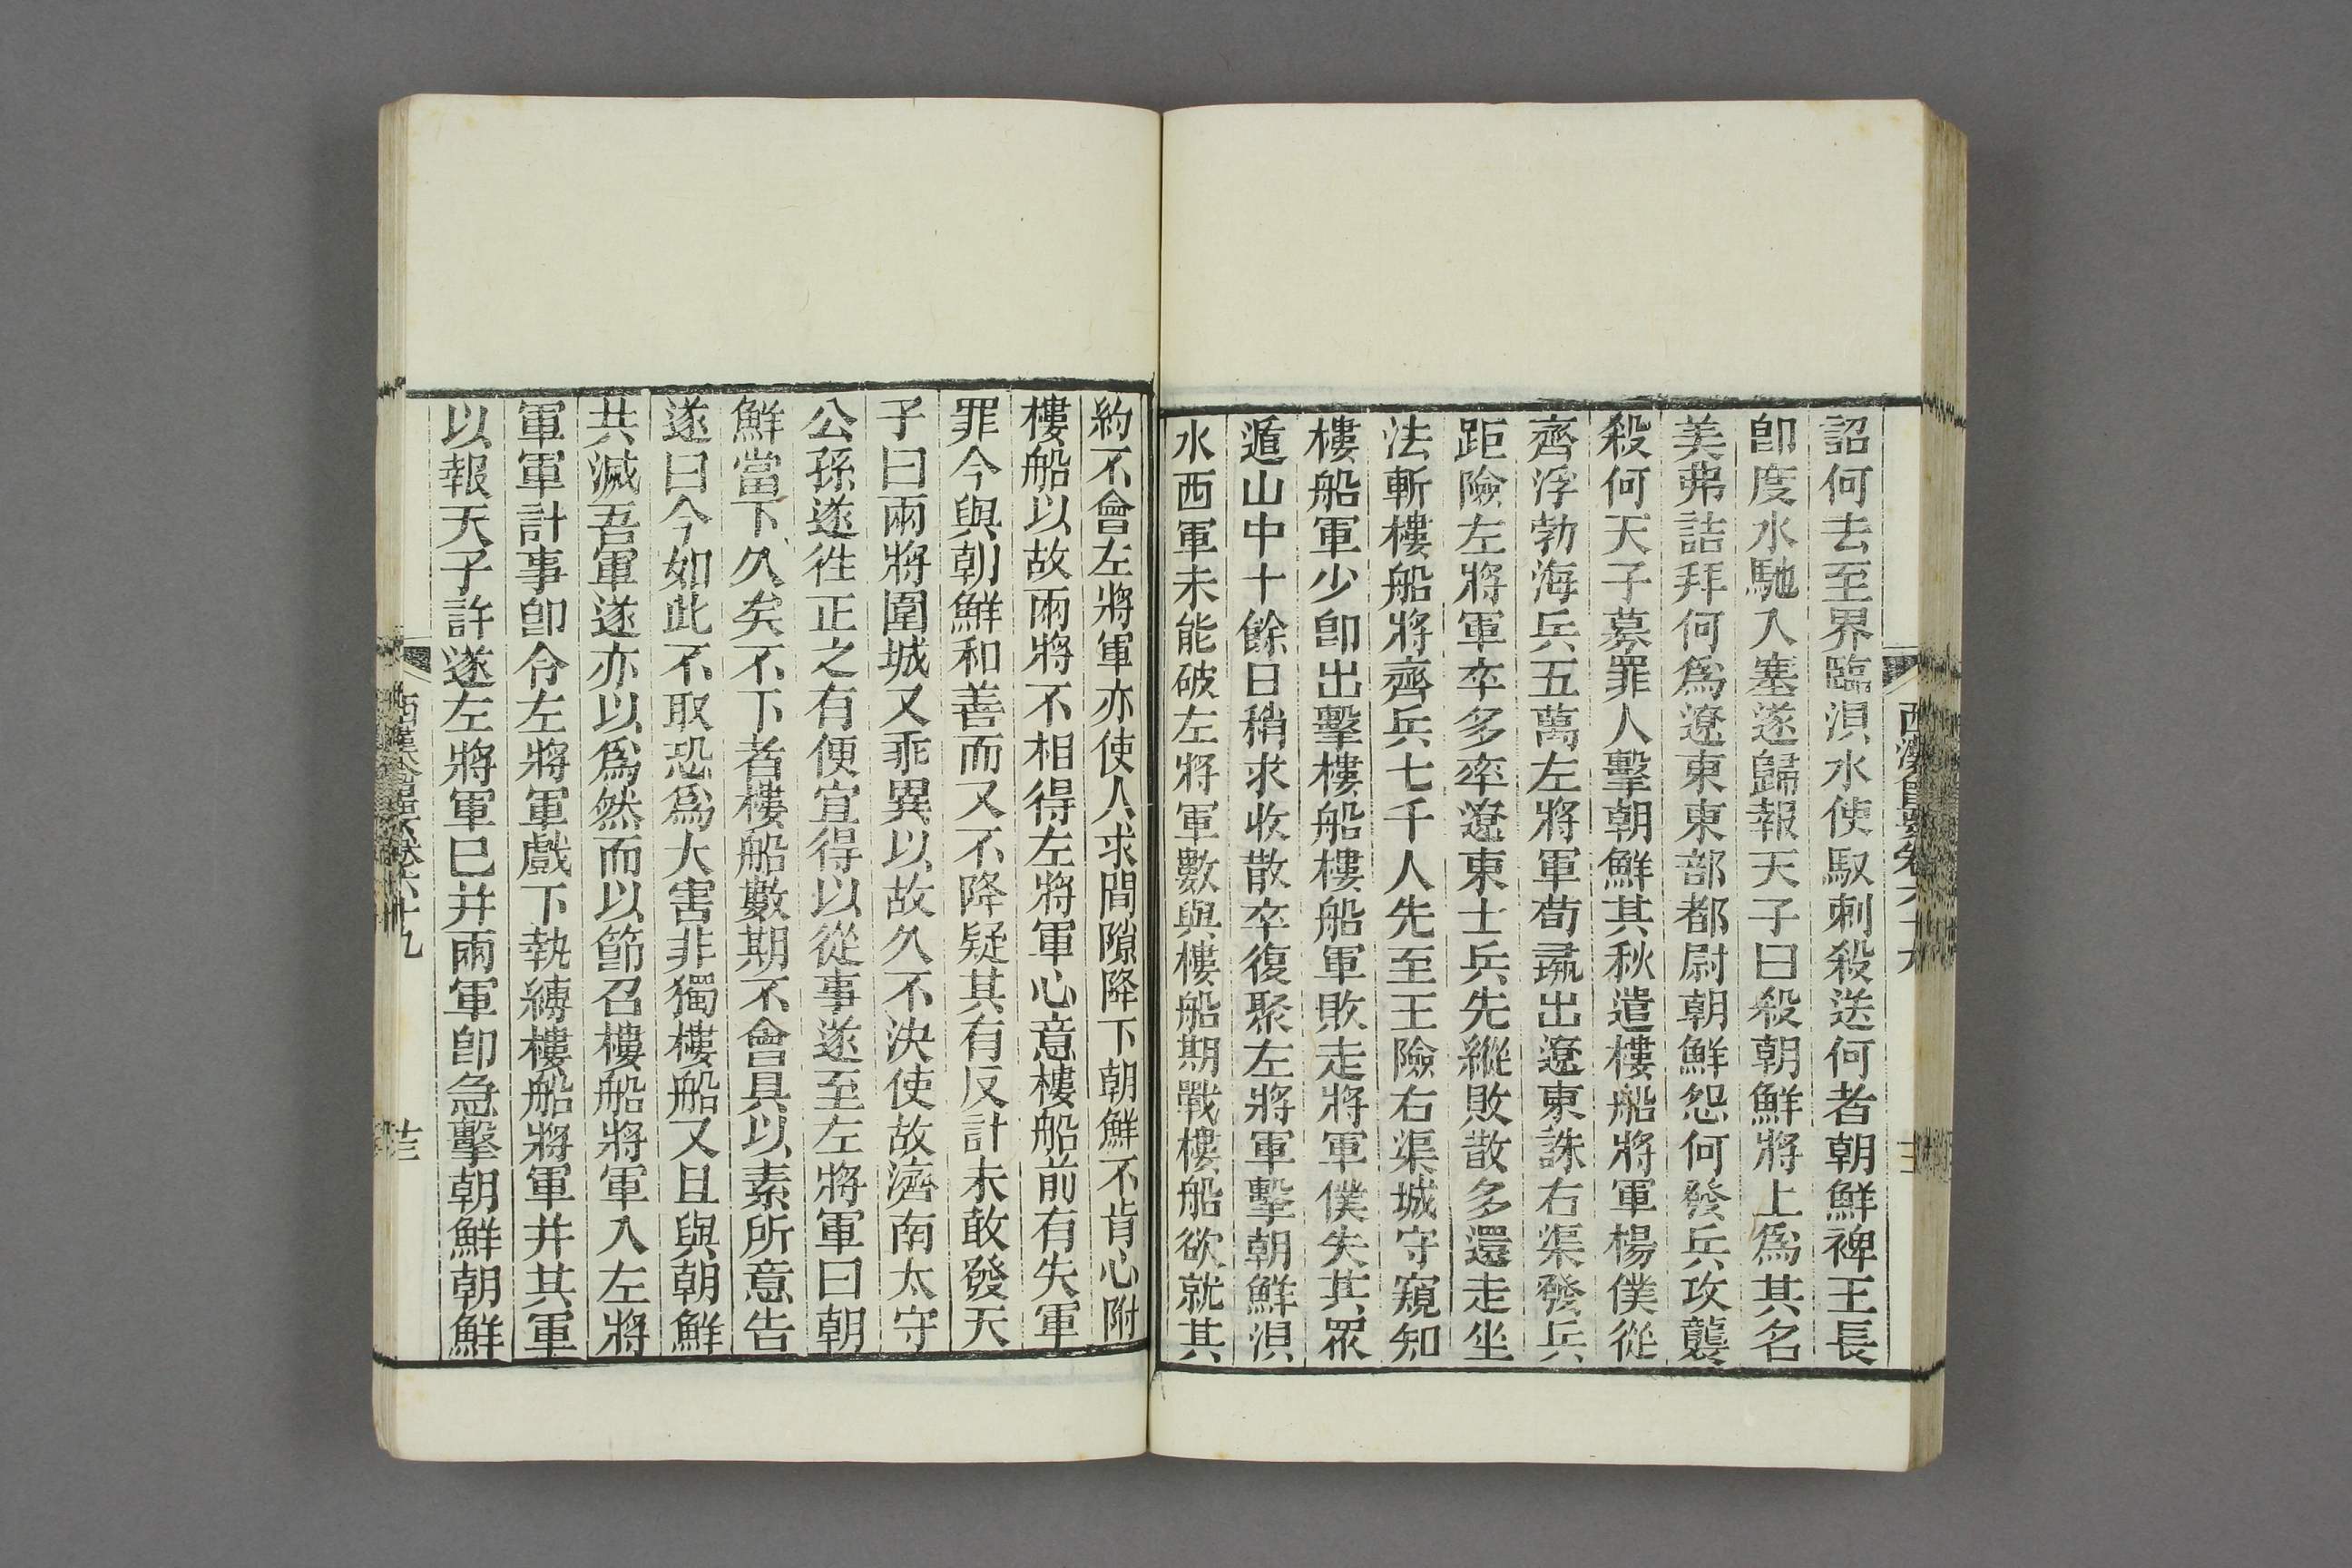 詔何去至界臨浿水使馭刺殺送何者朝鮮裨王長
卽度水馳入塞遂歸報天子曰殺朝鮮將上爲其名
美弗詰拜何爲遼東東部都尉朝鮮怨何發兵攻襲
殺何天子募罪人擊朝鮮其秋遣樓船將軍楊僕從
齊浮勃海兵五萬左將軍荀彘出遼東誅右渠發兵
距險左將軍卒多率遼東士兵先縱敗散多還走坐
法斬樓船將齊兵七千人先至王險右渠城守窺知
樓船軍少卽出擊樓船樓船軍敗走將軍僕失其眾
遁山中十餘日稍求收散卒復聚左將軍擊朝鮮浿
水西軍未能破左將軍數與樓船期戰樓船欲就其
約不會左將軍亦使人求間隙降下朝鮮不肯心附
樓船以故兩將不相得左將軍心意樓船前有失軍
罪今與朝鮮和善而又不降疑其有反計未敢發天
子曰兩將圍城又乖異以故久不決使故濟南太守
公孫遂徃正之有便宜得以從事遂至左將軍曰朝
鮮當下久矣不下者樓船數期不會具以素所意告
遂曰今如此不取恐爲大害非獨樓船又且與朝鮮
共滅吾軍遂亦以爲然而以節召樓船將軍入左將
軍軍計事卽令左將軍戲下執縛樓船將軍并其軍
以報天子許遂左將軍已并兩軍卽急擊朝鮮朝鮮
西漢會要卷六十九